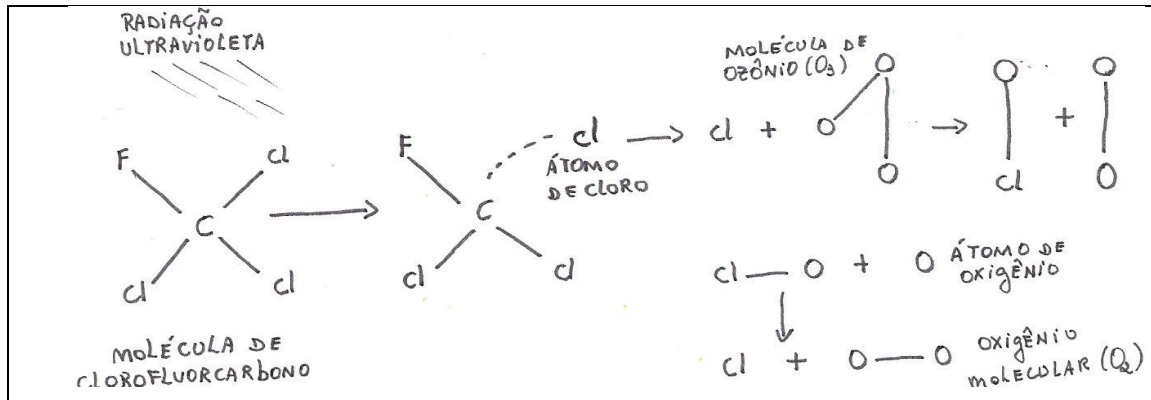 RADIAÇÃO
ULTRAVIOLETA
F
Cl
C
Cl
Cl
MOLÉCULA DE
CLOROFLUORCARBONO
F
C
Cl
Cl
Cl
ÁTOMO
DE CLORO
Cl +
MOLÉCULA DE
OZÔNIO (O₃)
O
O
O
O
Cl
+
O
O
Cl — O + O ÁTOMO DE
OXIGÊNIO
Cl + O — O OXIGÊNIO
MOLECULAR (O₂)